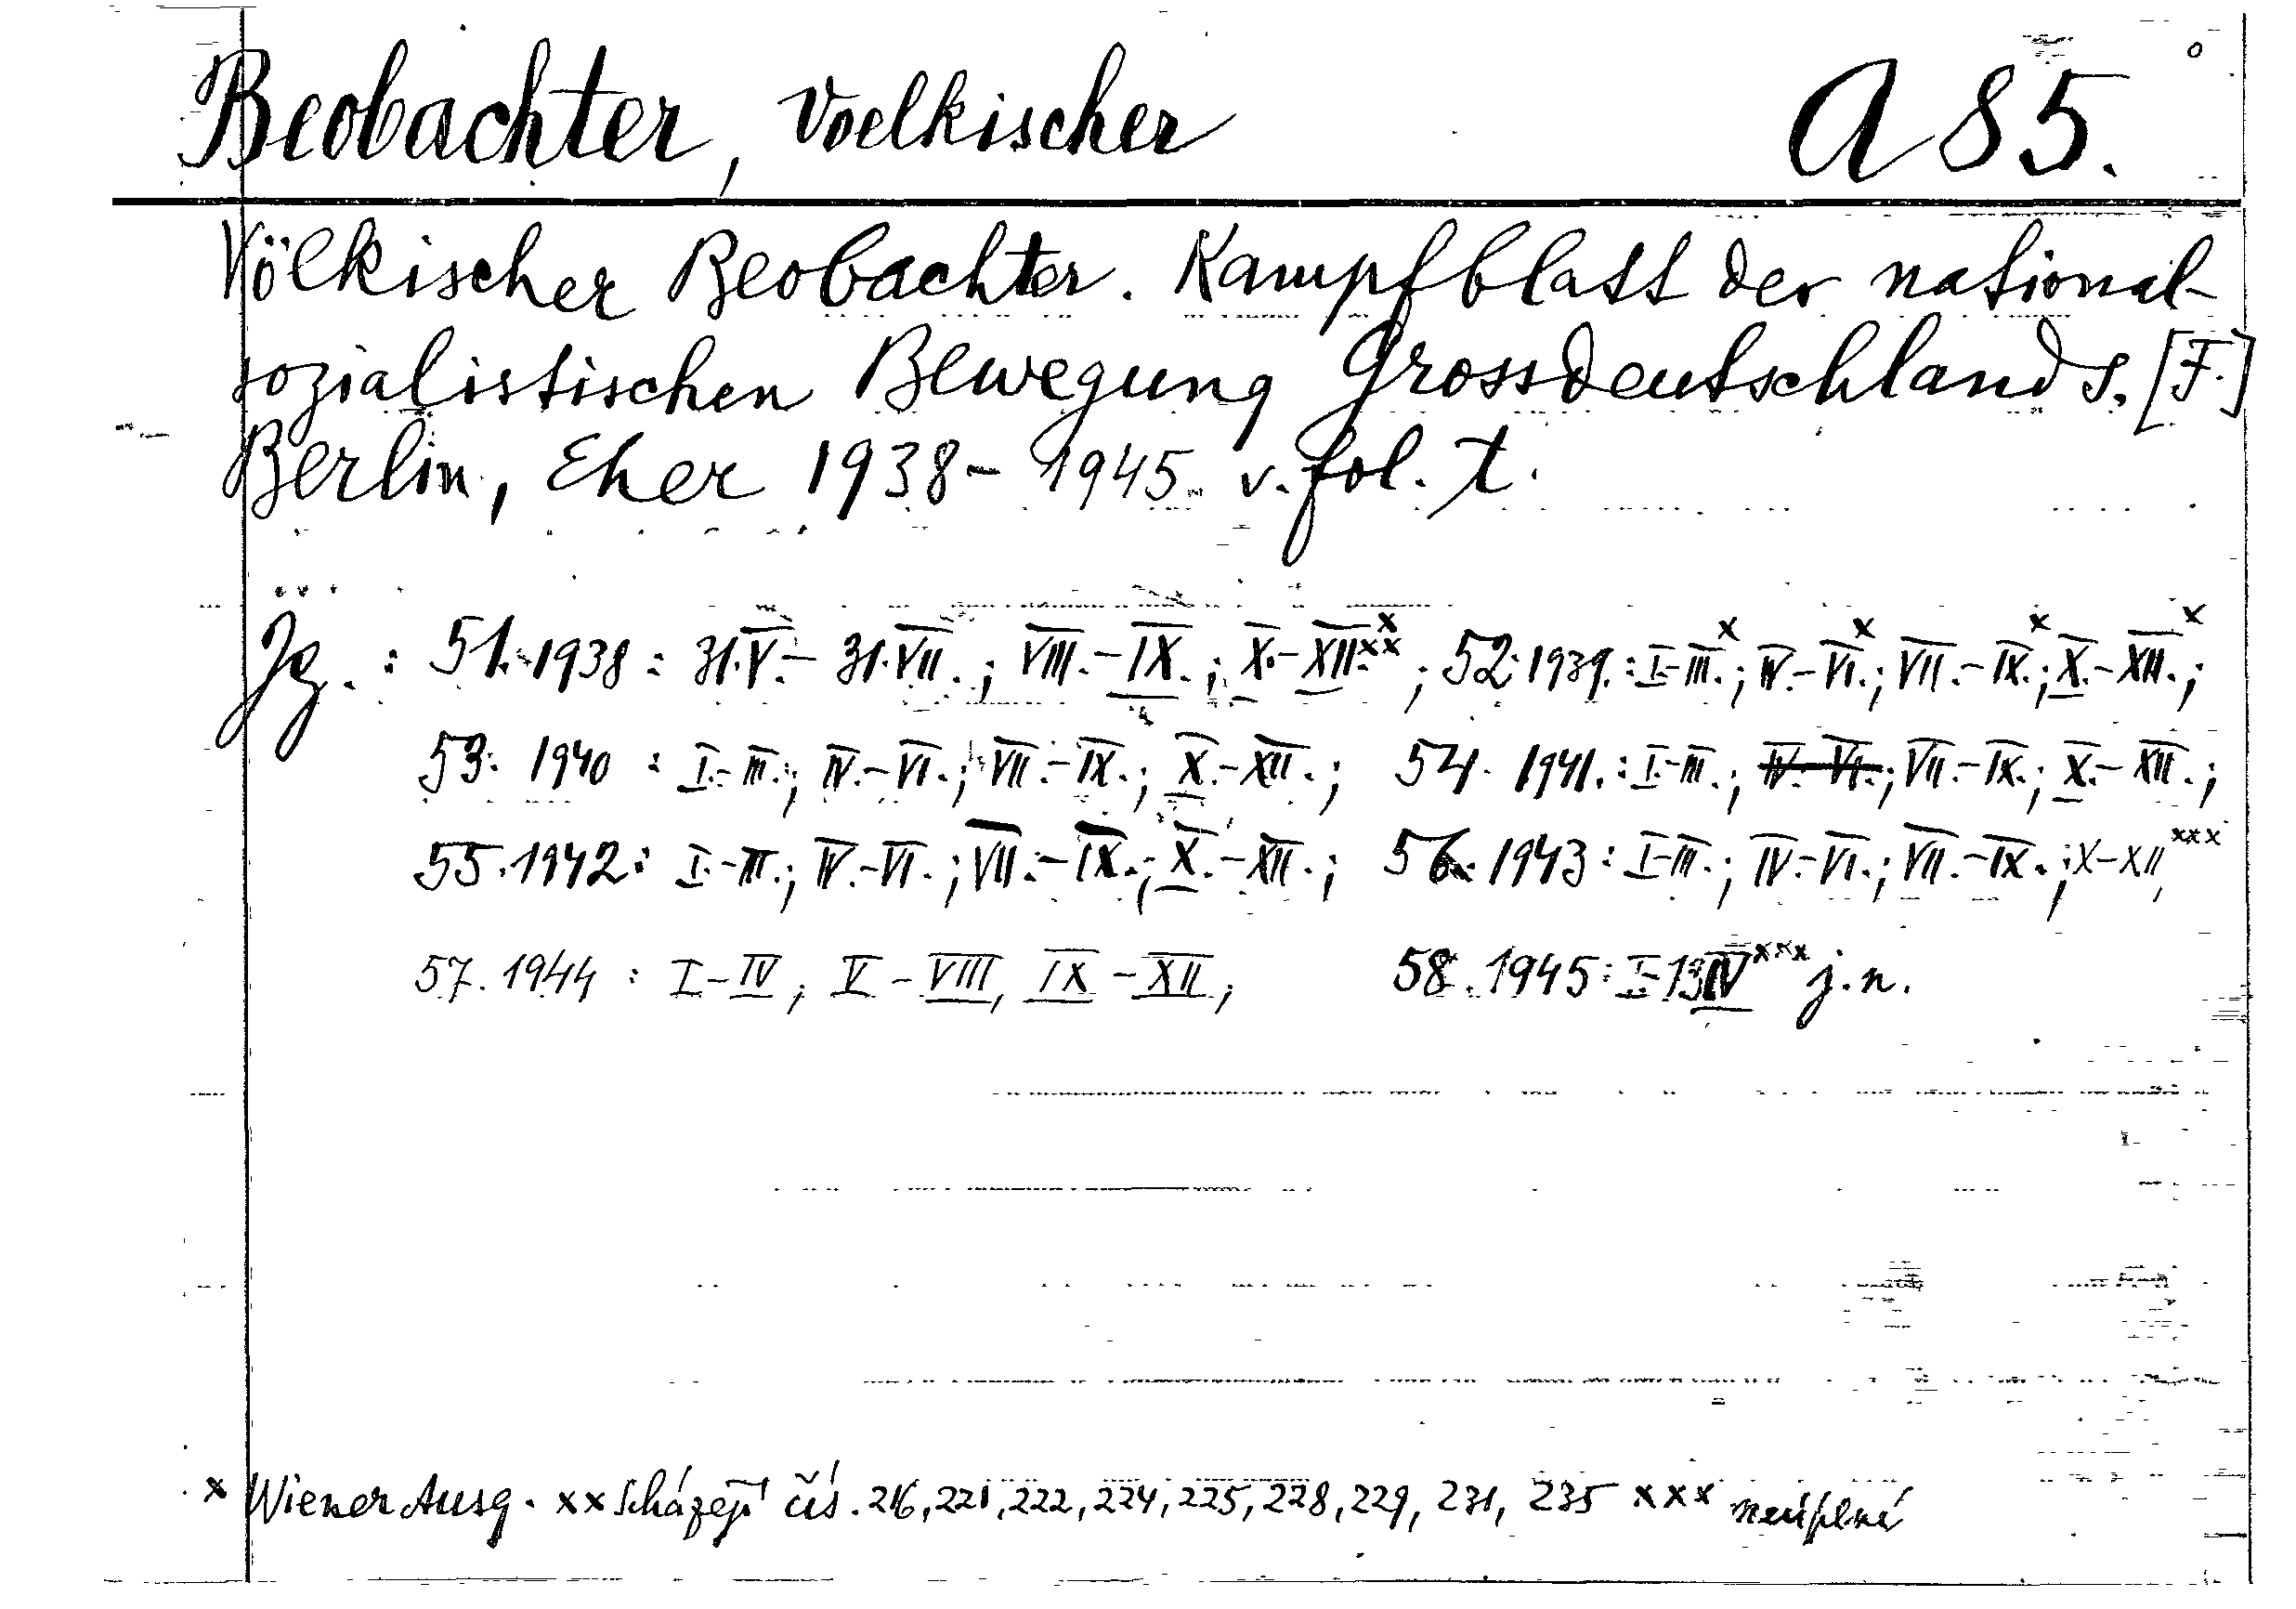 Beobachter, Voelkischer A 85.
Völkischer Beobachter. Kampfblatt der national-
sozialistischen Bewegung Grossdeutschlands. [F.]
Berlin, Eher 1938-1945 v. fol. t.
Jg.: 51. 1938: 31.V.-31.VII.; VIII.-IX.; X.-XII. x xx; 52. 1939.: I.-III. x; IV.-VI. x; VII.-IX. x; X.-XII. x;
53. 1940: I.-III.; IV.-VI.; VII.-IX.; X.-XII.; 54. 1941.: I.-III.; IV.-VI.; VII.-IX.; X.-XII.;
55. 1942: I.-III.; IV.-VI.; VII.-IX.; X.-XII.; 56. 1943: I-III.; IV.-VI.; VII.-IX.; X-XII xxx,
57. 1944: I-IV; V-VIII, IX-XII; 58. 1945: I-13 IV xxx j.n.
x Wiener Ausg. xx Scházejí čís. 216, 221, 222, 224, 225, 228, 229, 231, 235 xxx neúplné